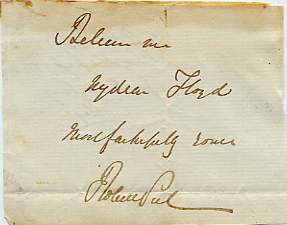 Believe me
My dear Floyd
Most faithfully yours
Robert Peel